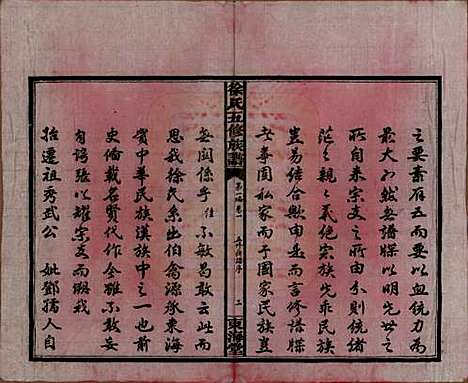 之要素有五而要以血統力
最大不然無譜牒以明先世之
所自來宗支之所由分則統緒
茫之親之之義絕宗族先乖民族
豈易結合歟由是而言修譜牒
之事固私家而于國家民族豈
無關係乎仕不敏曷敢云此而
思我徐氏系出伯翕源承東海
實中華民族漢族中之一也爾
史俻載名賢代作全雖不敢妄
自誇張以耀宗支而顯我
始遷祖秀武公 妣鄧孺人自
徐氏五修族譜
第一編卷一
五修譜序
三
東海堂